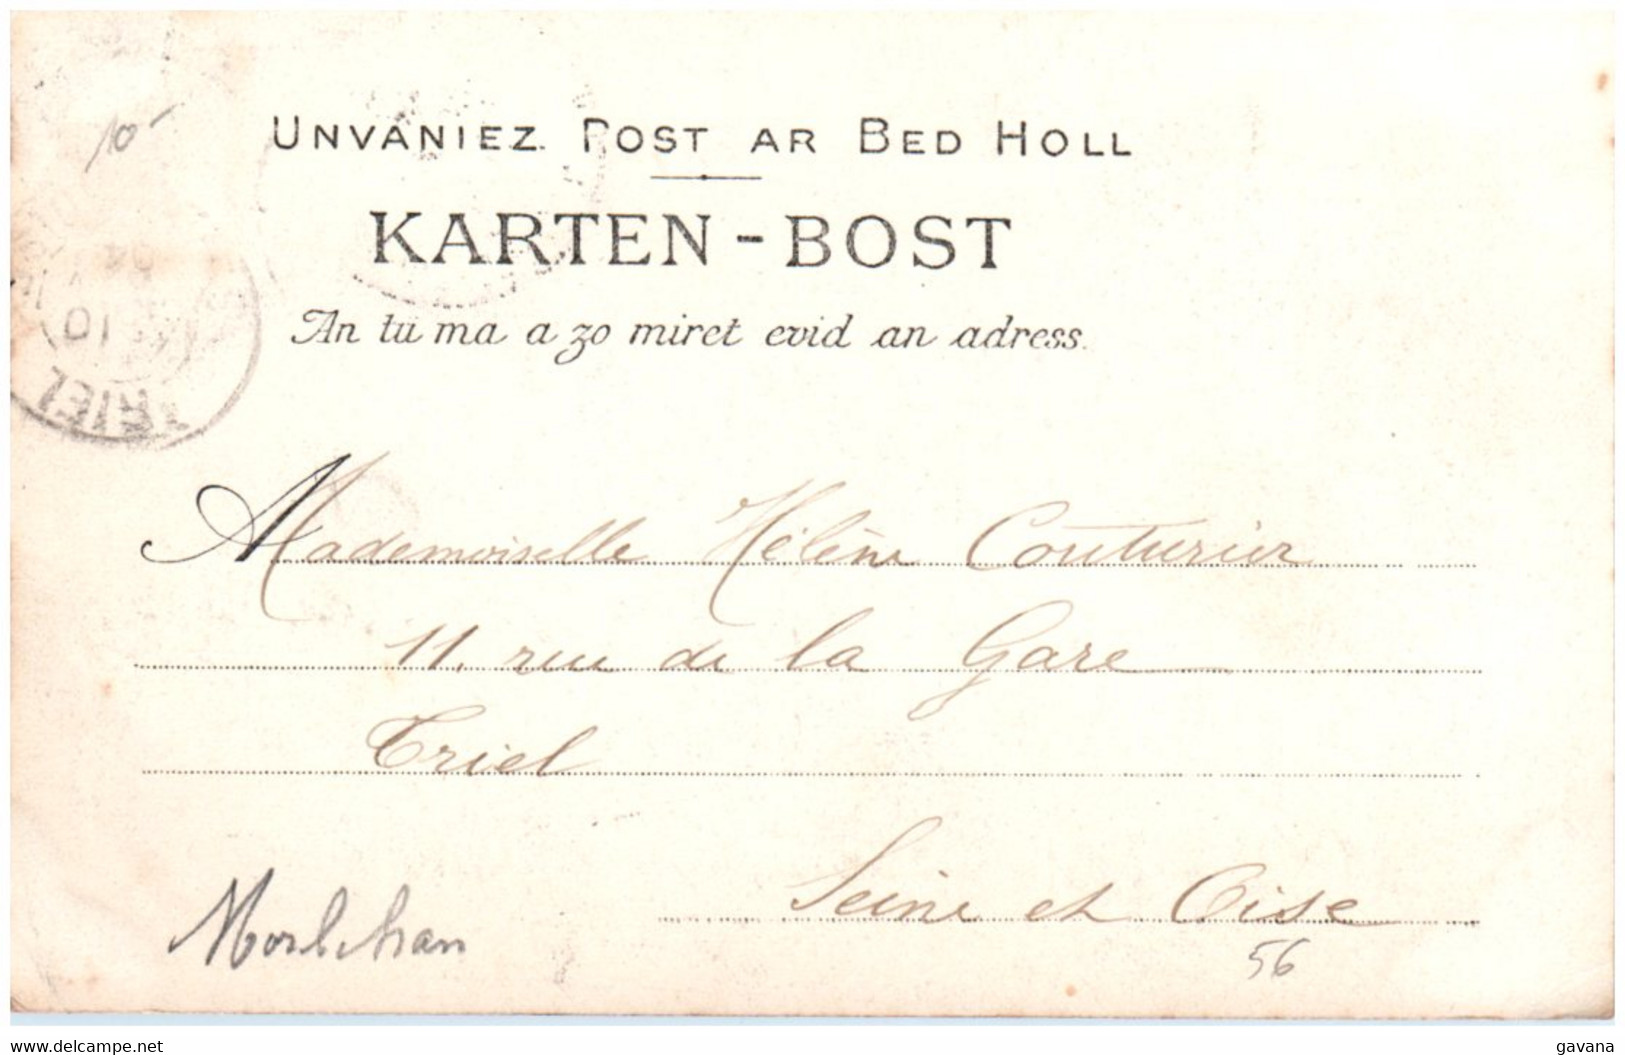 10-
UNVANIEZ POST AR BED HOLL
KARTEN-BOST
An tu ma a zo miret evid an adress.
04
10
TRIEL
Mademoiselle Hélène Couturier
11, rue de la Gare
Triel
Seine et Oise
Morbihan
56
www.delcampe.net
gavana